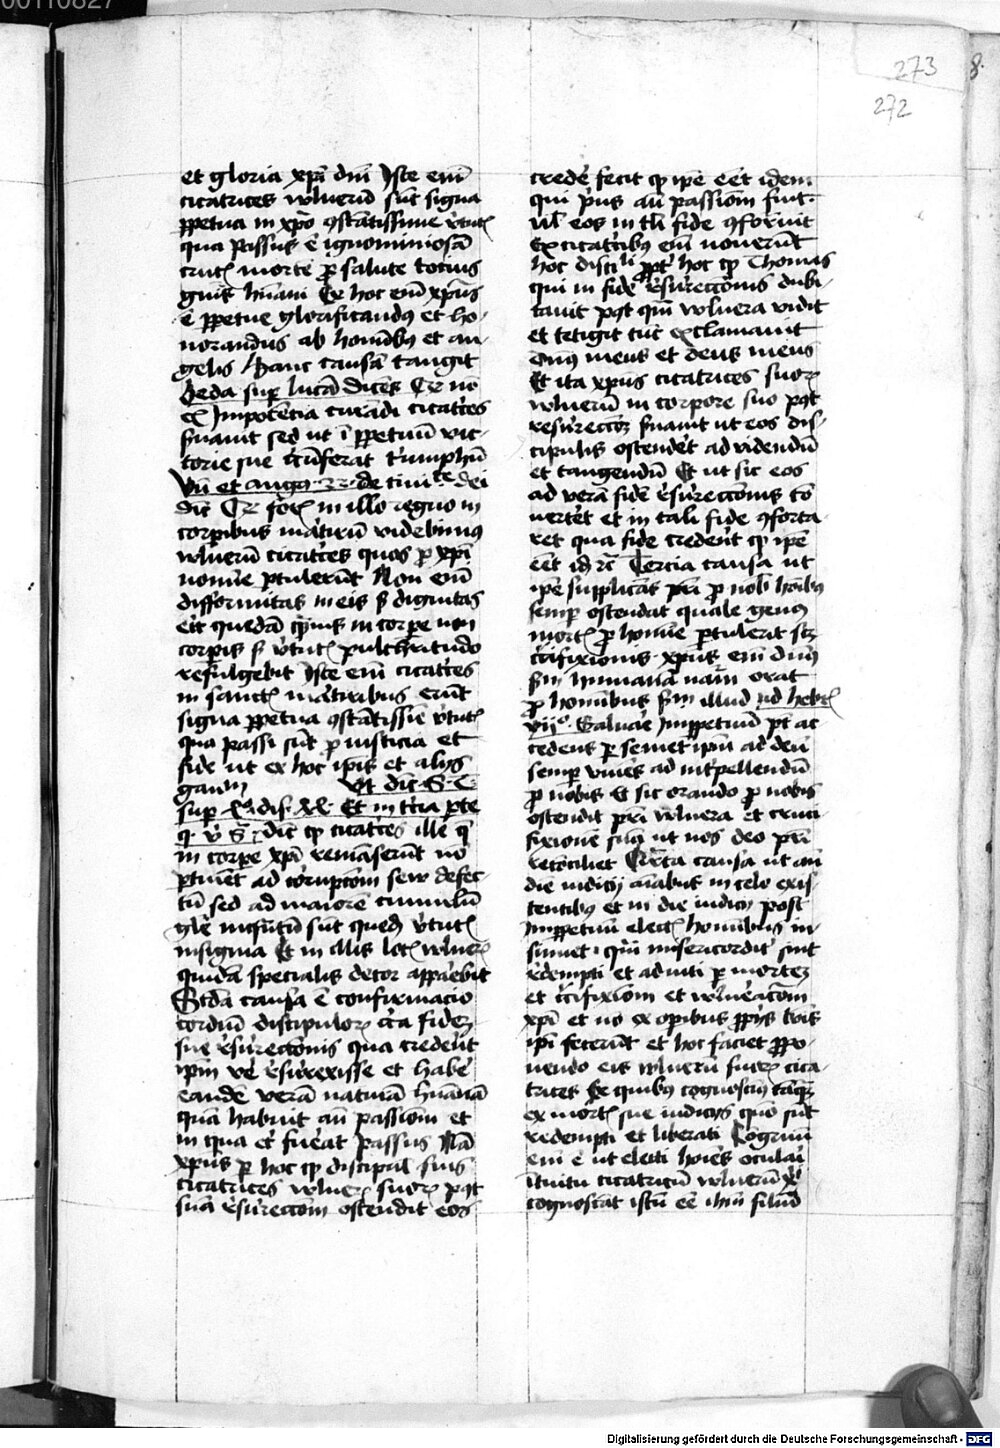 00110827
273
8
272
et gloria xpi dni Iste eni
cicatrices vulneru sut signa
ppetua in xpo 9stātissime v̄tut
qua passus ē ignominiosā
cruc morte p salute tocius
gn̄is hūani Ex hoc eni xpus
ē ppetue glorificandus et ho-
norandus ab hominibus et an-
gelis Hanc causā tangit
Beda sup lucā dicēs Cr no
ex Impotētia curādi cicatces
suauit sed ut ī ppetuū vic-
torie sue cūferat triumphū
Vn et augus 22 de ciuitate dei
dit Cr in illo regno in
corpibus matirū videbimus
vulnerū cicatces quos p xpi
nomine ptulerūt Non eni
difformitas in eis s dignitas
erit quedā in corpe
corpis s v̄tut pulchritudo
refulgebit Iste eni cicatces
in sanct martiribus erūt
signa ppetua 9stātissie v̄tut
qua passi sut p iusticia et
fide ut ex hoc ipis et alijs
Vt dic S T
sup dis Et in tcia pte
q dic cp cicatces ille q
in corpe xpi remāserūt no
ptinēt ad corupcōm seu defec-
tū sed ad maiorē cumulū
glē sut qued v̄tut
insignia Et in illis loc vulner
quidā specialis decor appebit
Scda causa ē confirmacio
cordiū discipulor cca fidez
sue resureccōnis qua credent
ipm ve resurexisse et habe
eandē verā naturā hūanā
quā habuit an passiom et
in qua et fuerat passus Nā
xpus p hoc cp discipul suis
cicatrices vulner suor pqt
suā resureccom ostendit eos
crede fecit cp ipe eēt idem
qui pus an passiom fuit
eos in tli fide 9fouit
Ex cicatcibus eni nouerūt
hoc discili ppt hoc cp Thomas
qui in fide resureccōnis dubi-
tauit pqt qm vulnera vidit
et tetigit tuc exclamauit
Dns meus et deus meus
Et ita xpus cicatrices suor
vulnerū in corpore suo pqt
resureccoz suauit ut eos dis-
cipulis ostendet ad videndū
et tangendū Et ut sic eos
ad verā fidē resureccōnis cō-
uertet et in tali fide 9forta-
ret qua fide crederet cp ipe
eēt id Tercia causa ut
ipe supplicās pri p nob hoibus
semp ostendat quale genus
mort p homine ptulerit scz
cifixionis xpus eni dns
sm humanā nam orat
p hominibus sm illud ad hebr
vij Saluare Inppetuū pt ac-
cedens p semetipm ad deū
semp viues ad intpellendū
p nobis Et sic orando p nobis
ostendit pri vulnera et cruci-
fixione suā ut nos deo pri
reconciliet Qrta causa ut an
diē iudicij aiabus in celo exis-
tentibus et in die iudicij post
Inppetuū elect hominibus in-
sinuet qm misericordit sint
redempti et adiuti p mortez
et cifixiom et vulneracom
xpi et no ex opibus ppijs bois
ipi fecerūt et hoc faciet ppo-
nendo eis vulnerū suor cica-
trices Ex quibus cognoscūt
ex mort sue iudicijs quo sut
redempti et liberati Cogruū
eni ē ut electi hoies oculari
ituitu cicatricū vulnerū xpi
cognoscāt istū eē ihm filiū
Digitalisierung gefördert durch die Deutsche Forschungsgemeinschaft - DFG